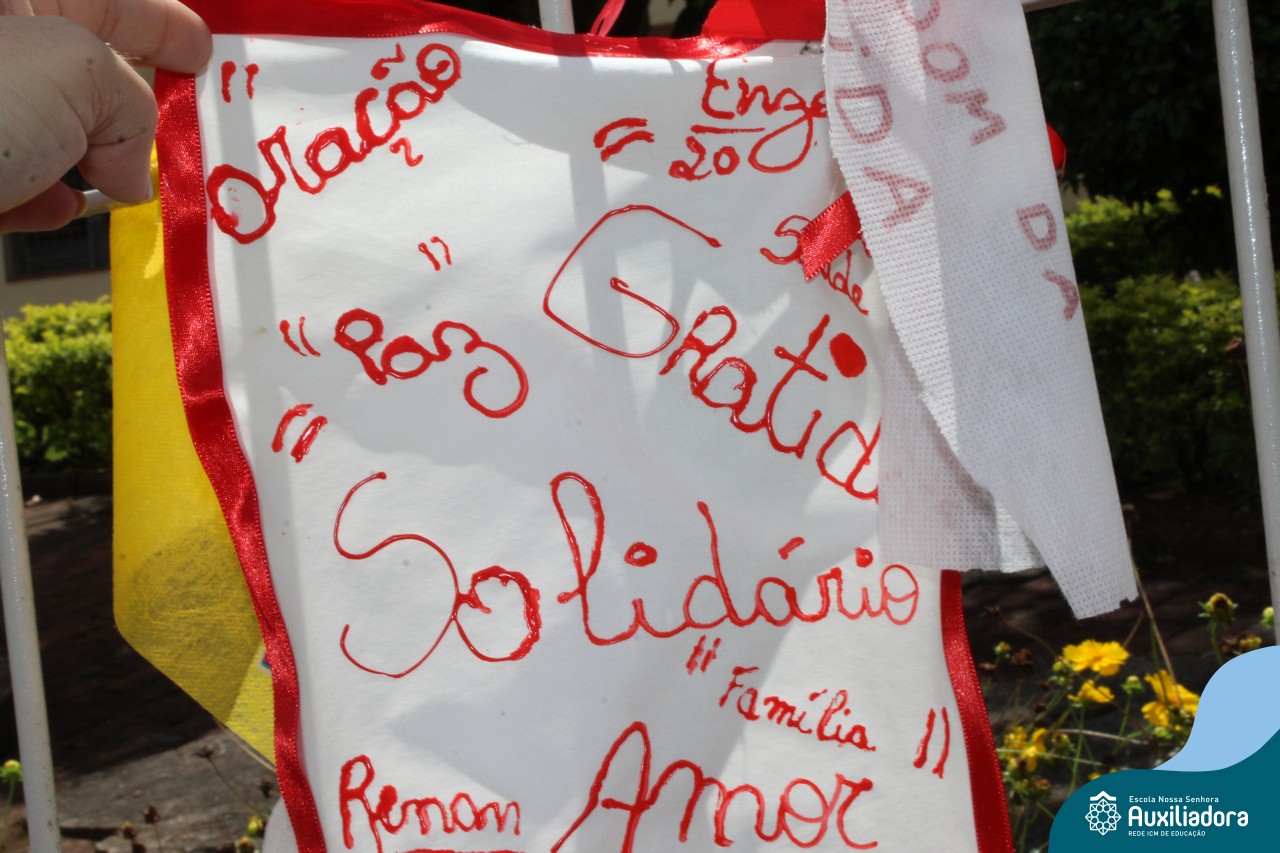 "Oração
= 20
"Paz"
Gratid
"Solidário
"Família"
Renan
Amor
DOM DA
DA
Escola Nossa Senhora
Auxiliadora
REDE ICM DE EDUCAÇÃO